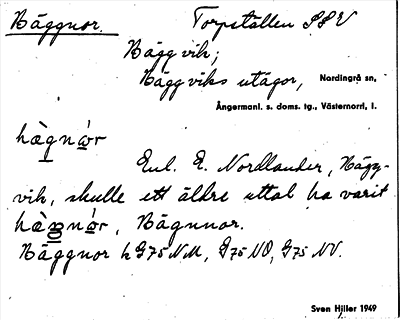 Häggnor. Torpställen SSV
Häggvik;
Häggviks utägor, Nordingrå sn,
Ångermanl. s. doms. tg., Västernorrl. l.
hægnør
Enl. E. Nordlander, Hägg-
vik, skulle ett äldre uttal ha varit
hægnør, Hägnnor.
Häggnor h G75 NM, G75 NO, G75 NV.
Sven Hjller 1949